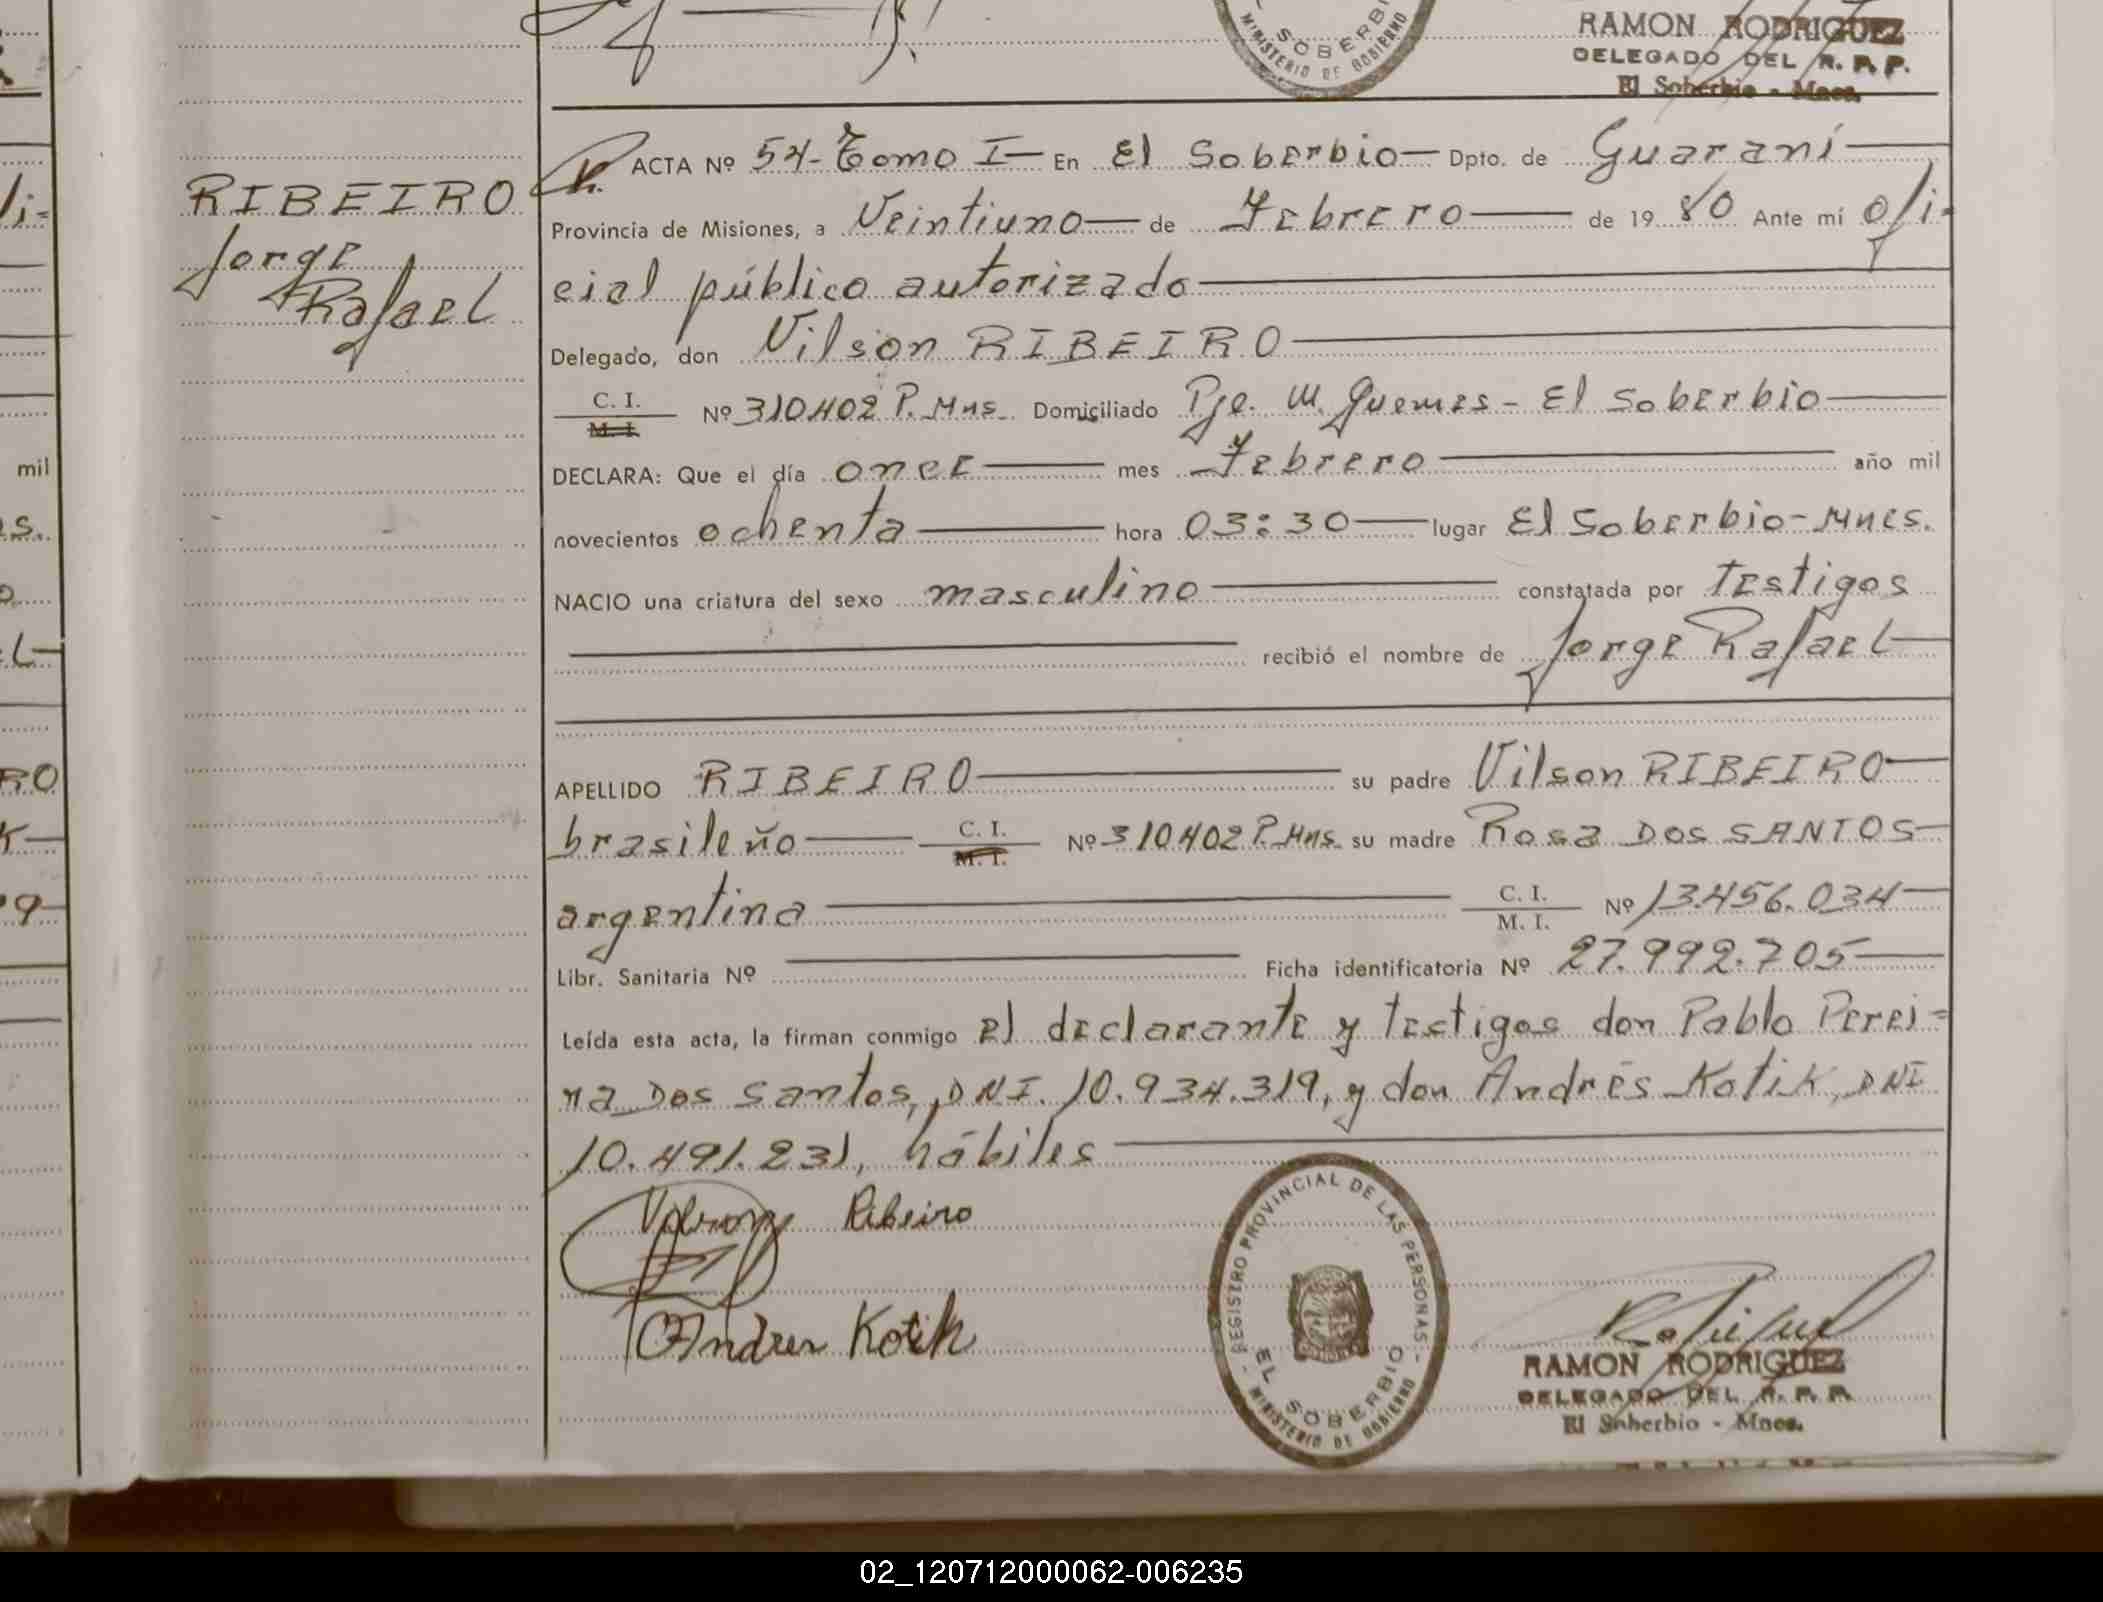 SOBERBIO
MINISTERIO DE GOBIERNO
RAMON RODRIGUEZ
DELEGADO DEL R. P. P.
El Soberbio - Mnes.
RIBEIRO
Jorge
Rafael
ACTA Nº 54- Tomo I- En El Soberbio- Dpto. de Guaraní
Provincia de Misiones, a Veintiuno de Febrero de 1980 Ante mí ofi-
cial público autorizado
Delegado, don Vilson RIBEIRO
C. I.
M. I.
Nº 310402 P. Mns. Domiciliado Pje. M. Guemes - El Soberbio
DECLARA: Que el día once mes Febrero año mil
novecientos ochenta hora 03:30 lugar El Soberbio-Mnes.
NACIO una criatura del sexo masculino constatada por testigos
recibió el nombre de Jorge Rafael
APELLIDO RIBEIRO su padre Vilson RIBEIRO
brasileño C. I. Nº 310402 P. Mns. su madre Rosa DOS SANTOS
M. I.
argentina C. I. Nº 13.456.034
M. I.
Libr. Sanitaria Nº Ficha identificatoria Nº 27.992.705
Leída esta acta, la firman conmigo el declarante y testigos don Pablo Perei=
ra Dos Santos, DNI. 10.934.319, y don Andrés Kotik, DNI
10.491.231, hábiles
Ribeiro
Andres Kotik
REGISTRO PROVINCIAL DE LAS PERSONAS
EL SOBERBIO
MINISTERIO DE GOBIERNO
RAMON RODRIGUEZ
DELEGADO DEL R. P. P.
El Soberbio - Mnes.
02_120712000062-006235